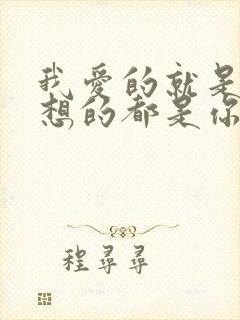 我爱的就是
想的都是你
程寻寻